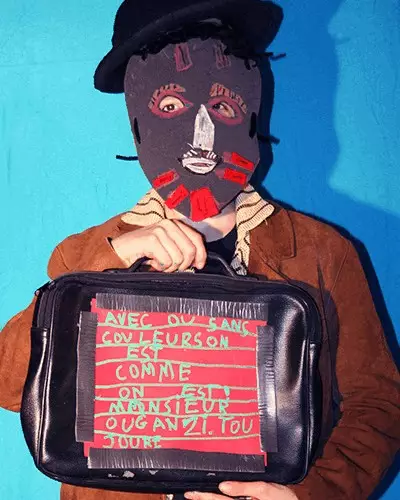 AVEC OU SANS
COULEURS ON
EST
COMME
ON EST!
MONSIEUR
OUGANZI. TOU
JOURE